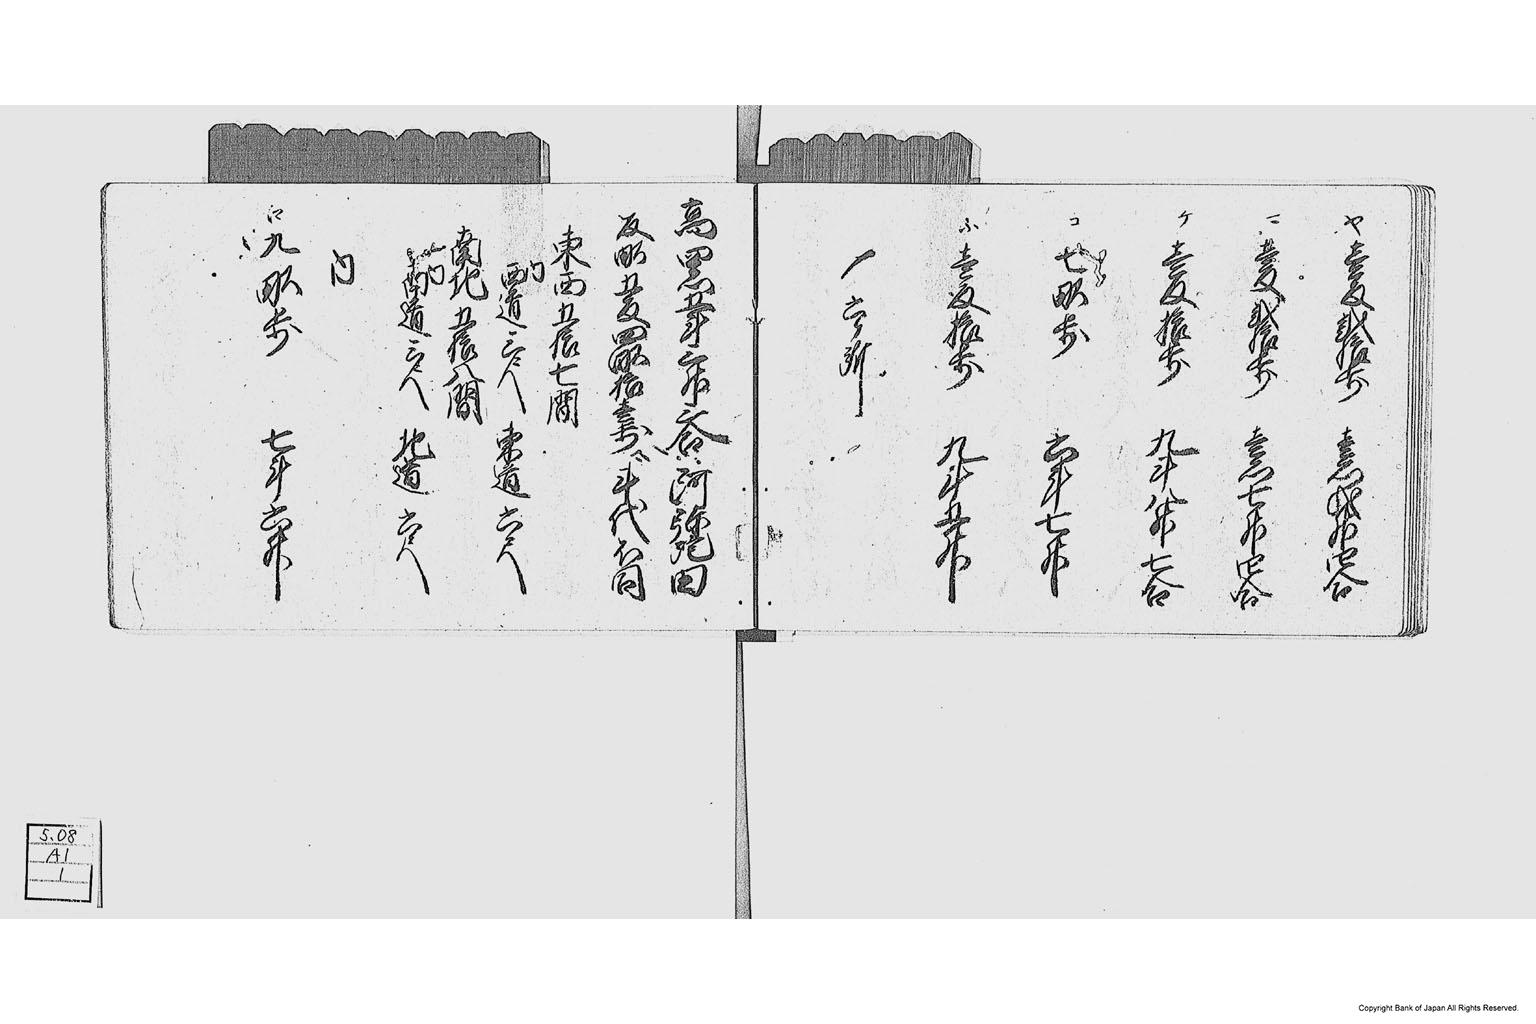 ヤ 壱反弐拾歩 壱石弐升四合
ニ 壱反弐拾歩 壱石七升四合
ケ 壱反拾歩 九斗八升七合
コ 七畝歩 六斗七升
ふ 壱反拾歩 九斗五升
一 六ヶ所
高 四石五斗六升六合 河強田
反畝五反四畝拾壱歩 斗代不同
東西五拾七間
内 西道三尺 東道六尺
南北五拾八間
内 南道三尺 北道六尺
内
ロ 九畝歩 七斗六升
5.08
A1
1
Copyright Bank of Japan All Rights Reserved.